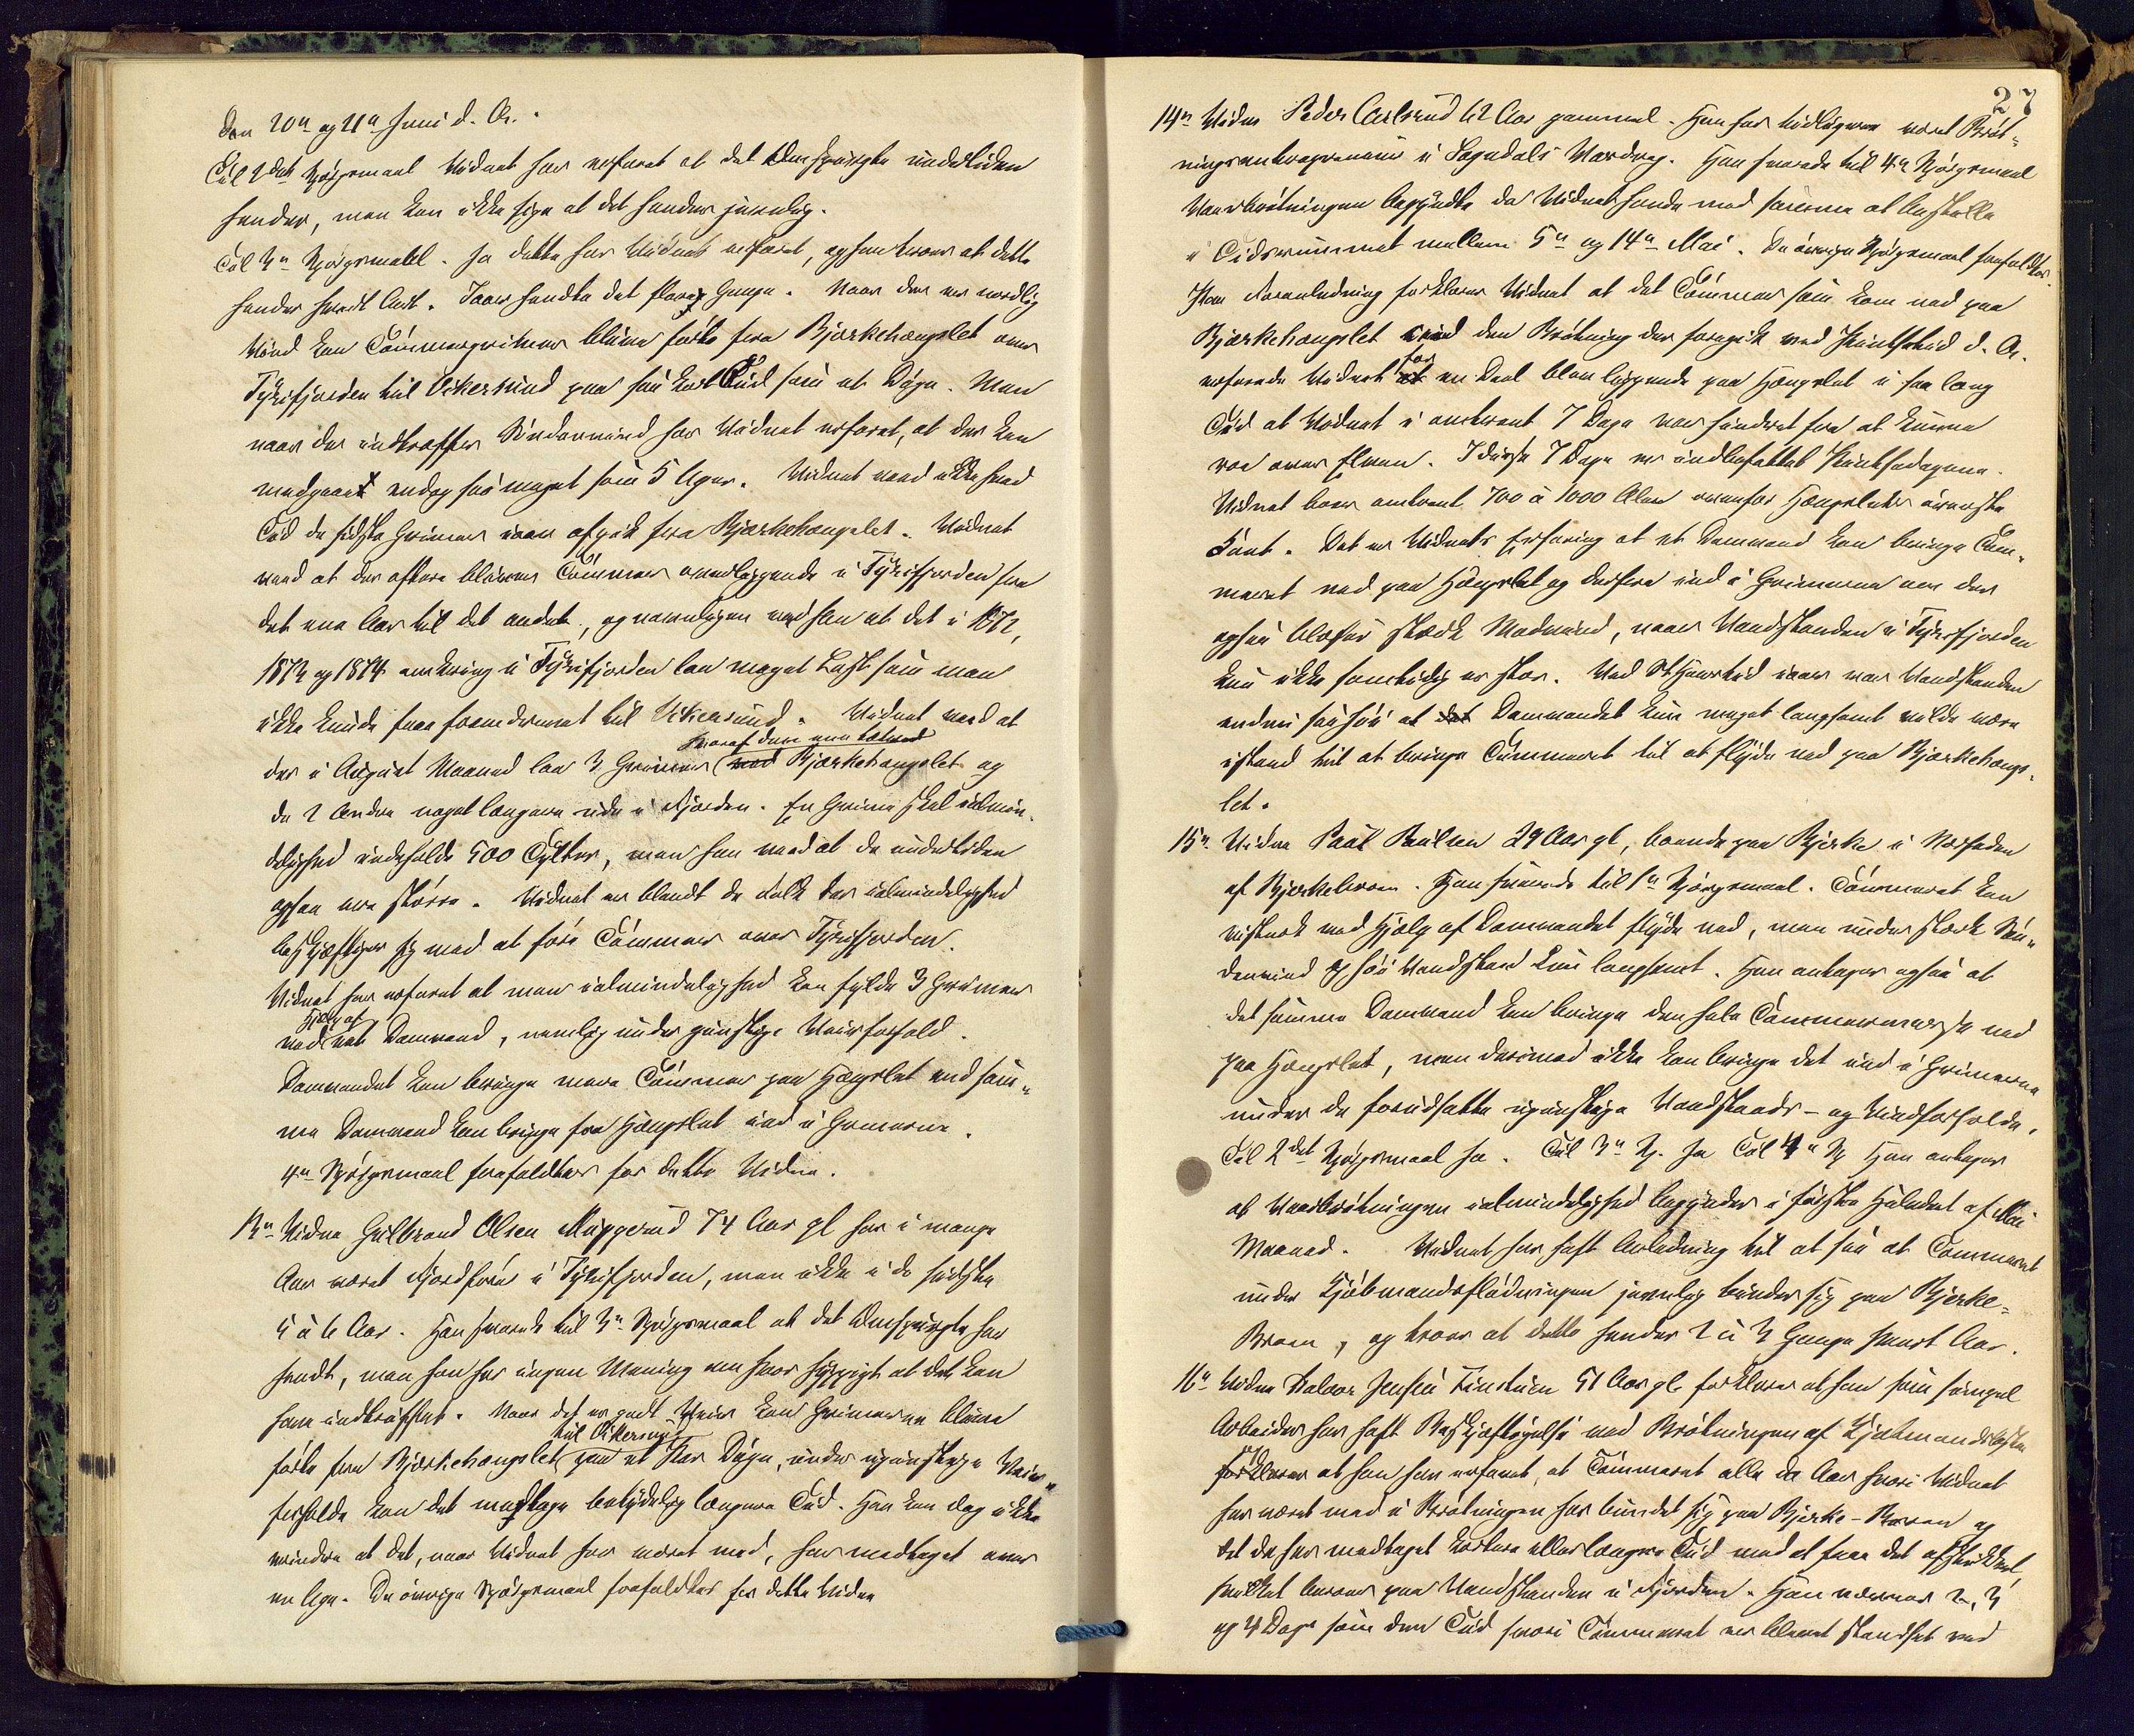 den 20de og 21de Juni d. A.
Til 2det Spörgsmaal Vidnet har erfaret at det Omspurgte undertiden
hender, men kan ikke sige at det hender jevnlig.
Til 3die Spörgsmaal. Ja dette har Vidnet erfaret, og han troer at dette
hender hvert Aar. Iaar hendte det flere Gange. Naar der er nordlig
Vind kan Tömmergrimer blive förte fra Bjerkehængslet over
Tyrifjorden til Vikersund paa saa kort Tid som et Dögn. Men
naar der indtræffer Söndenvind har Vidnet erfaret, at der kan
medgaa endog saa meget som 5 Uger. Vidnet veed ikke hvad
Tid de sidste Grimer iaar afgik fra Bjerkehængslet. Vidnet
veed at der oftere bliver Tömmer overliggende i Tyrifjorden fra
det ene Aar til det andet, og navnligen veed han at det i 1872,
1873 og 1874 omkring i Tyrifjorden laa meget Last som man
ikke kunde faae fremdrevet til Vikersund. Vidnet veed at
hvoraf den ene
der i August Maaned laa 3 Grimer ved Bjerkehængslet og
de 2 andre noget længere ude i Fjorden. En Grime skal almin-
delighed indeholde 500 Tylter, men han veed at de undertiden
ogsaa ere större. Vidnet er blandt de Folk der i almindelighed
beskjæftiger sig med at före Tömmer over Tyrifjorden.
Vidnet har erfaret at man i almindelighed kan fylde 3 Grimer
Hjælp af
ved et Damvand, nemlig under gunstige Veirforhold.
Damvandet kan bringe mere Tömmer paa Hængslet end sam-
me Damvand kan bringe fra Hængslet ind i Grimerne.
4de Spörgsmaal frafaldtes for dette Vidne.
13de Vidne Gulbrand Olsen Muggerud 74 Aar gl har i mange
Aar været Fjordförer i Tyrifjorden, men ikke i de sidste
5 à 6 Aar. Han svarede til 3die Spörgsmaal at det Omspurgte har
hendt, men han har ingen Mening om hvor hyppigt at det kan
have indtruffet. Naar det er godt Veir kan Grimerne blive
til Vikersund
förte fra Bjerkehængslet paa et Par Dögn, under ugunstige Veir-
forholde kan det medtage betydelig længere Tid. Han kan dog ikke
erindre at det, naar Vidnet har været med, har medtaget over
en Uge. De övrige Spörgsmaal frafaldtes for dette Vidne
27
14de Vidne Peder Carlsrud 62 Aar gammel. Han har tidligere været Bröt-
ningsentreprenör i Sogndals Vasdrag. Han svarede til 4de Spörgsmaal
Vaarbrötningen begyndte da Vidnet havde med samme at bestille
i Tidsrummet mellem 5te og 14de Mai. De övrige Spörgsmaal frafaldtes.
Paa Foranledning forklarer Vidnet at det Tömmer som kom ned paa
Bjerkehængslet ved den Brötning der foregik ved Pintsetid d. A.
for
erfarede Vidnet at en Deel blev liggende paa Hængslet i saa lang
Tid at Vidnet i omtrent 7 Dage var hindret fra at kunne
roe over Elven. I disse 7 Dage er indbefattet Pintsedagene.
Vidnet boer omtrent 700 à 1000 Alen ovenfor Hængslets överste
Kant. Det er Vidnets Erfaring at et Damvand kan bringe Töm-
meret ned paa Hængslet og derfra ind i Grimerne om der
ogsaa blæser stærk Modvind, naar Vandstanden i Tyrifjorden
kun ikke samtidig er stor. Ved St. Hanstid iaar var Vandstanden
endnu saa höi at Damvandet kun meget langsomt vilde være
istand til at bringe Tömmeret til at flyde ned paa Bjerkehængs-
let.
15de Vidne Paul Paulsen 29 Aar gl, boende paa Bjerke i Nærheden
af Bjerkebroen. Han svarede til 1ste Spörgsmaal. Tömmeret kan
vistnok ved Hjælp af Damvandet flyde ned, men under stærk Sön-
denvind og höi Vandstand kun langsomt. Han antager ogsaa at
det samme Damvand kan bringe den hele Tömmermasse ned
paa Hængslet, men derimod ikke kan bringe det ind i Grimerne
under de forudsatte ugunstige Vandstands- og Vindforholde.
Til 2det Spörgsmaal Ja. Til 3die Sp. Ja Til 4de Sp Han antager
at Vaarbrötningen i almindelighed begynder i förste Halvdel af Mai
Maaned. Vidnet har havt Anledning til at see at Tömmeret
under Kjöbmandsflödningen jevnlig binder sig paa Bjerke-
Broen, og troer at dette hender 2 à 3 Gange hvert Aar.
16de Vidne Halvor Jensen 51 Aar gl forklarer at han som simpel
Arbeider har havt Beskjæftigelse med Brötningen af Kjöbmandslasten
forklarer at han har erfaret, at Tömmeret alle de Aar hvori Vidnet
har været med i Brötningen har bundet sig paa Bjerke-Broen og
det da har medtaget kortere eller længere Tid med at faae det afskikket
hvilket beroer paa Vandstanden i Fjorden. Han nævner 2, 3
og 4 Dage som den Tid hvori Tömmeret er blevet standset ved